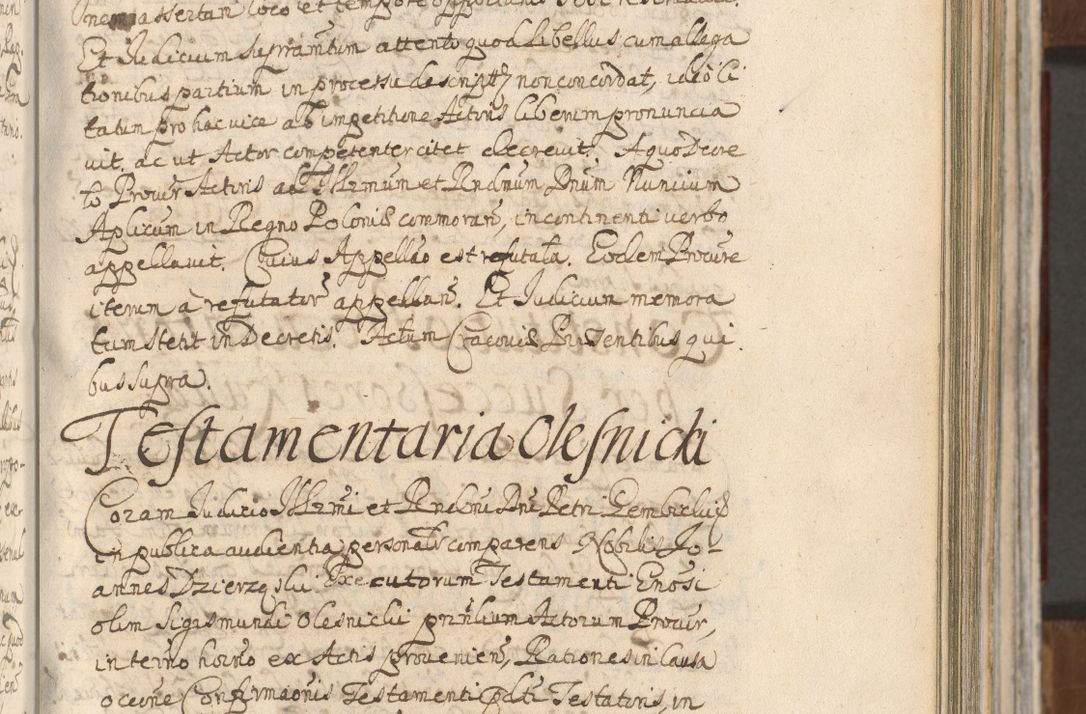 assertam loco et tempore
Et Judicium supramtum attento quod Libellus cum allega
tionibus partium in processu descriptis non concordat, ideo Ci
tatum pro hac vice ab impetitione Actoris liberum pronuncia
vit. ac ut Actor competenter citet decrevit. A quo Decre
to Procur Actoris ad Illrmum et Rndmum Dnum Nuncium
Aplicum in Regno Poloniæ commoran, incontinenti verbo
appellavit. Cuius Appellao est refutata. Eodem Procure
iterum à refutator appellan. Et Judicium memora
tum stetit in Decretis. Actum Cracoviæ Præsentibus qui
bus supra.
Testamentaria Olesnicki
Coram Judicio Illrmi et Rndmi Dni Petri Gembicki
in publica audientia personalr comparens Nobilis Jo-
annes Dzierzęski Executorum Testamenti Gnosi
olim Sigismundi Olesnicki prinlium Actorum Procur,
in termo horno ex Actis provenien, Rationes in Causa
Confirmaonis Testamenti pdti Testatoris, in